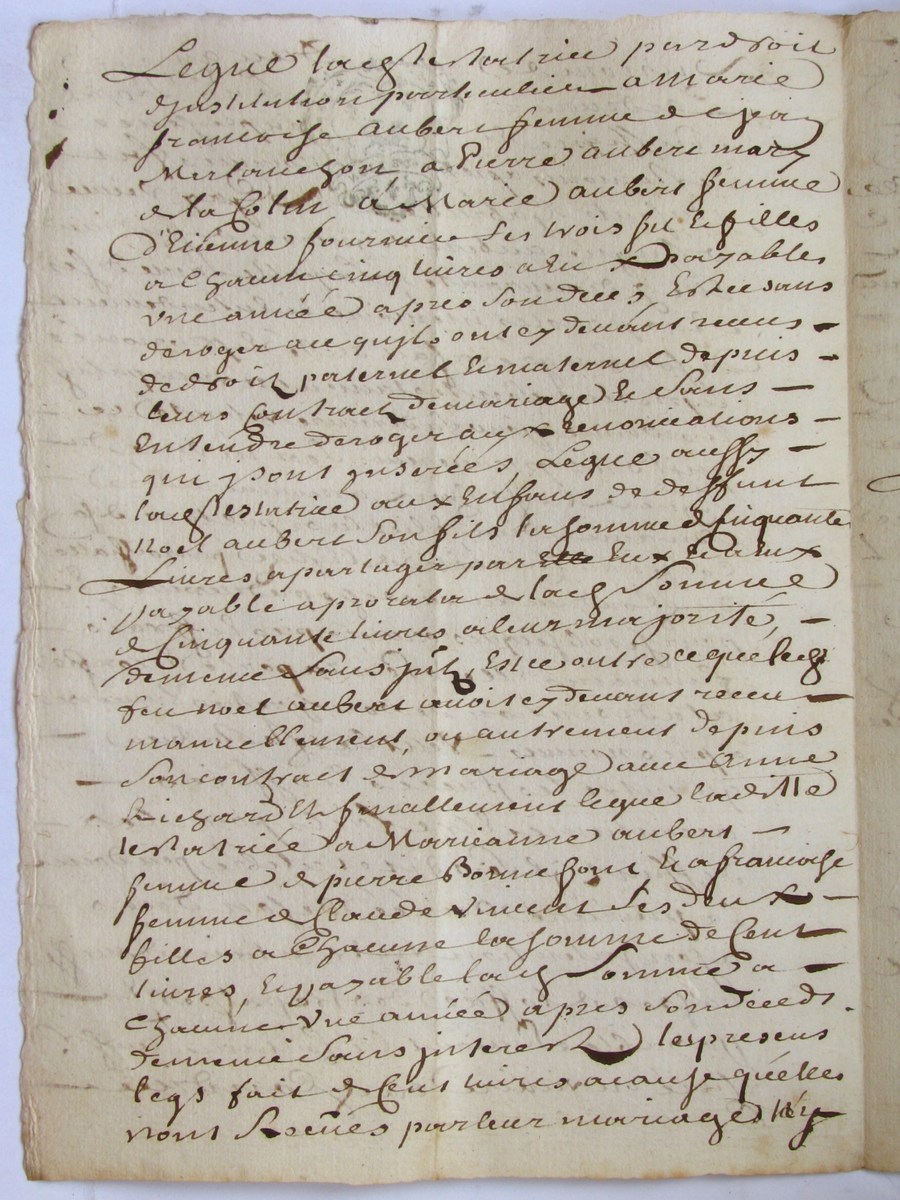 Legue lad testatrice par droit
dinstitution particuliere a Marie
francoise aubert femme de
Merlanchon a Pierre aubert mary
de la Colin a Marie aubert femme
d'Etienne fournier ses trois fil et filles
a Chacun cinq livres a Eux payables
une année apres son deces, Et ce sans
deroger a ce qu'ils ont cy devant receus
de droit paternel Et maternel depuis
leurs Contract de mariage Et Sans
Entendre deroger aux Renonciations
qui y sont inserées, Legue aussy
lad testatrice aux Enfans de deffunt
Noel aubert son fils la somme de Cinquante
Livres a partager par Eux Et a Eux
payable a prorata de lad Somme
de Cinquante livres a leur majorité,
de meme sans jnt, Et ce outre ce que led
feu noel aubert avoit cy devant receu
manuellement, ou autrement depuis
son contract de mariage avec Anne
Richard Et finallement legue laditte
testatrice a Marieanne aubert
femme de pierre Bonnefont Et a francoise
femme de Claude vincent ses deux
filles a Chacune la somme de Cent
livres, Et payable lad Somme a
Chacune une année apres son decedz
de meme sans jnterest, les presens
legs fait de Cent livres a cause quelles
n'ont receues par leur mariage